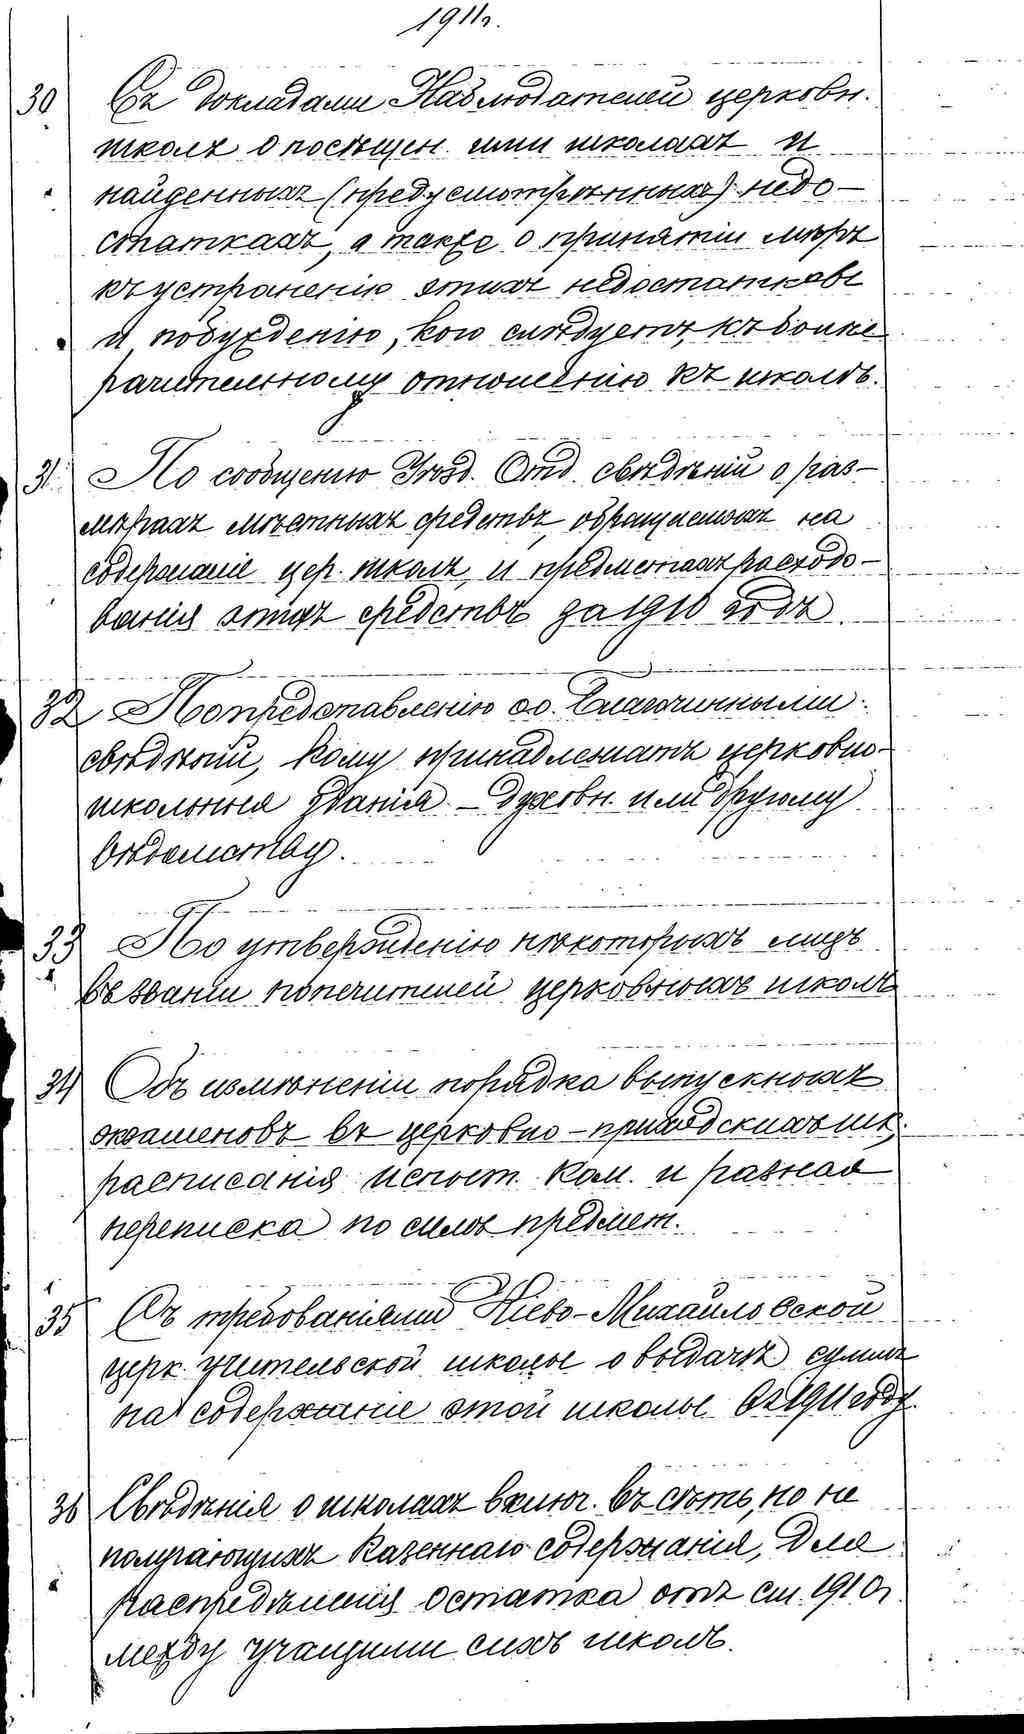 1911г.
30 Съ докладами Наблюдателей церковн.
школъ о посѣщен. ими школахъ и
найденныхъ (предусмотрѣнныхъ) недо-
статкахъ, а также о принятіи мѣръ
къ устраненію этихъ недостатковъ
и побужденію, кого слѣдуетъ, къ болѣе
рачительному отношенію къ школѣ.
31 По сообщенію Уѣзд. Отд. свѣдѣній о раз-
мѣрахъ мѣстныхъ средствъ, обращаемыхъ на
содержаніе цер. школъ, и предметахъ расходо-
ванія этихъ средствъ за 1910 годъ.
32 По представленію о.о. Благочинными
свѣдѣній, кому принадлежатъ церковно-
школьныя зданія - духовн. или другому
вѣдомству.
33 По утвержденію нѣкоторыхъ лицъ
въ званіи попечителей церковныхъ школъ
34 Объ измѣненіи порядка выпускныхъ
экзаменовъ въ церковно-приходскихъ шк.
расписанія испыт. ком. и разная
переписка по симъ предмет.
35 Съ требованіями Кіево-Михайловской
церк. учительской школы о выдачѣ суммъ
на содержаніе этой школы въ 1911 году.
36 Свѣдѣнія о школахъ включ. въ сѣть, но не
получающихъ казеннаго содержанія, для
распредѣленія остатка отъ см. 1910 г.
между учащими сихъ школъ.